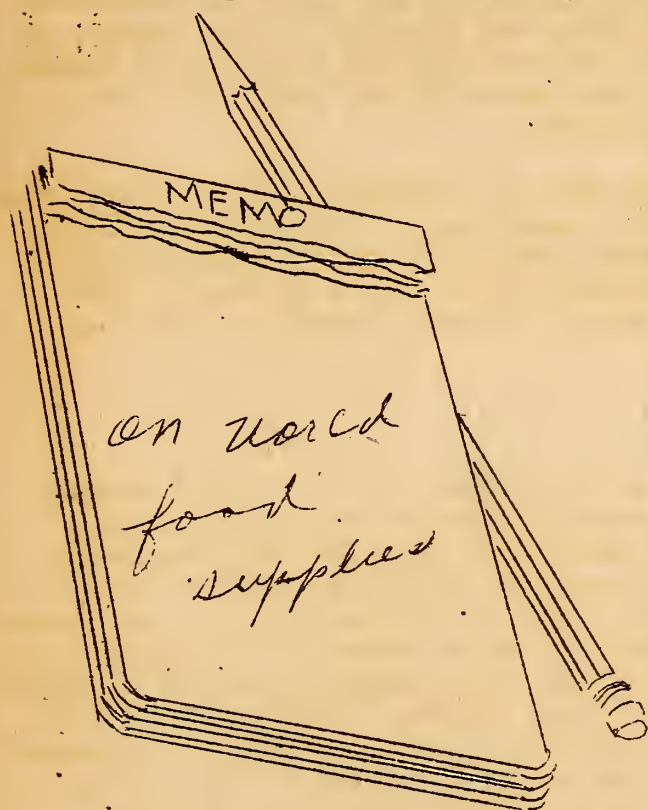 MEMO
on world
food
supplies